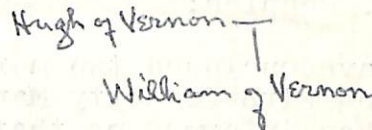 Hugh of Vernon
William of Vernon